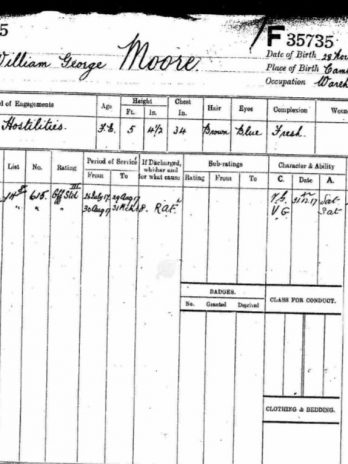 5
William George Moore.
F 35735
Date of Birth 28 Nov
Place of Birth Cam
Occupation Wareh
d of Engagements Age Height Chest Hair Eyes Complexion Woun
Ft. In. In.
Hostilities. F.E. 5 4½ 34 Brown Blue Fresh.
List No. Rating Period of Service If Discharged, whither and for what cause Sub-ratings Character & Ability
From To Rating From To C. Date A.
14 615 26 July 17 29 Aug 17 V.G. 31.12.17 Sat
" " 30 Aug 17 31 Mch 18. R.A.F. V G Sat
BADGES.
No. Granted Deprived
CLASS FOR CONDUCT.
CLOTHING & BEDDING.